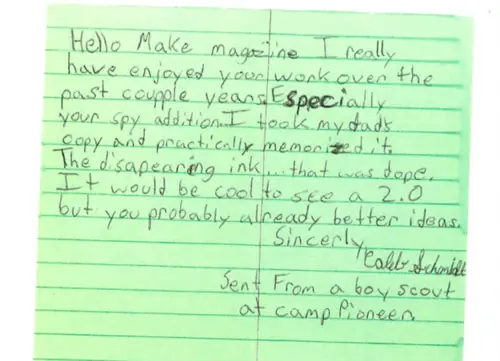 Hello Make magazine I really
have enjoyed your work over the
past coupple years. Especially
your spy addition. I took my dads
copy and practically memorized it.
The disapearing ink... that was dope.
It would be cool to see a 2.0
but you probably already better ideas.
Sincerly,
Caleb Schmidt
Sent From a boy scout
at camp Pioneer.